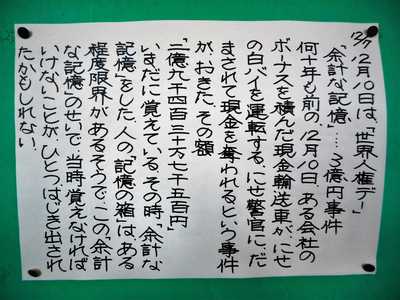 12/7
12月10日は、「世界人権デー」
「余計な記憶」……3億円事件
何十年も前の、12月10日、ある会社の
ボーナスを積んだ現金輸送車が、にせ
の白バイを運転する、にせ警官に、だ
まされて現金を奪われる、という事件
が、おきた。その額
「二億九千四百三十万七千五百円」
いまだに覚えている。その時「余計な
記憶」をした。人の「記憶の箱」は、ある
程度限界があるそうで、この「余計
な記憶」のせいで、当時覚えなければ
いけないことが、ひとつはいき出され
たかもしれない。